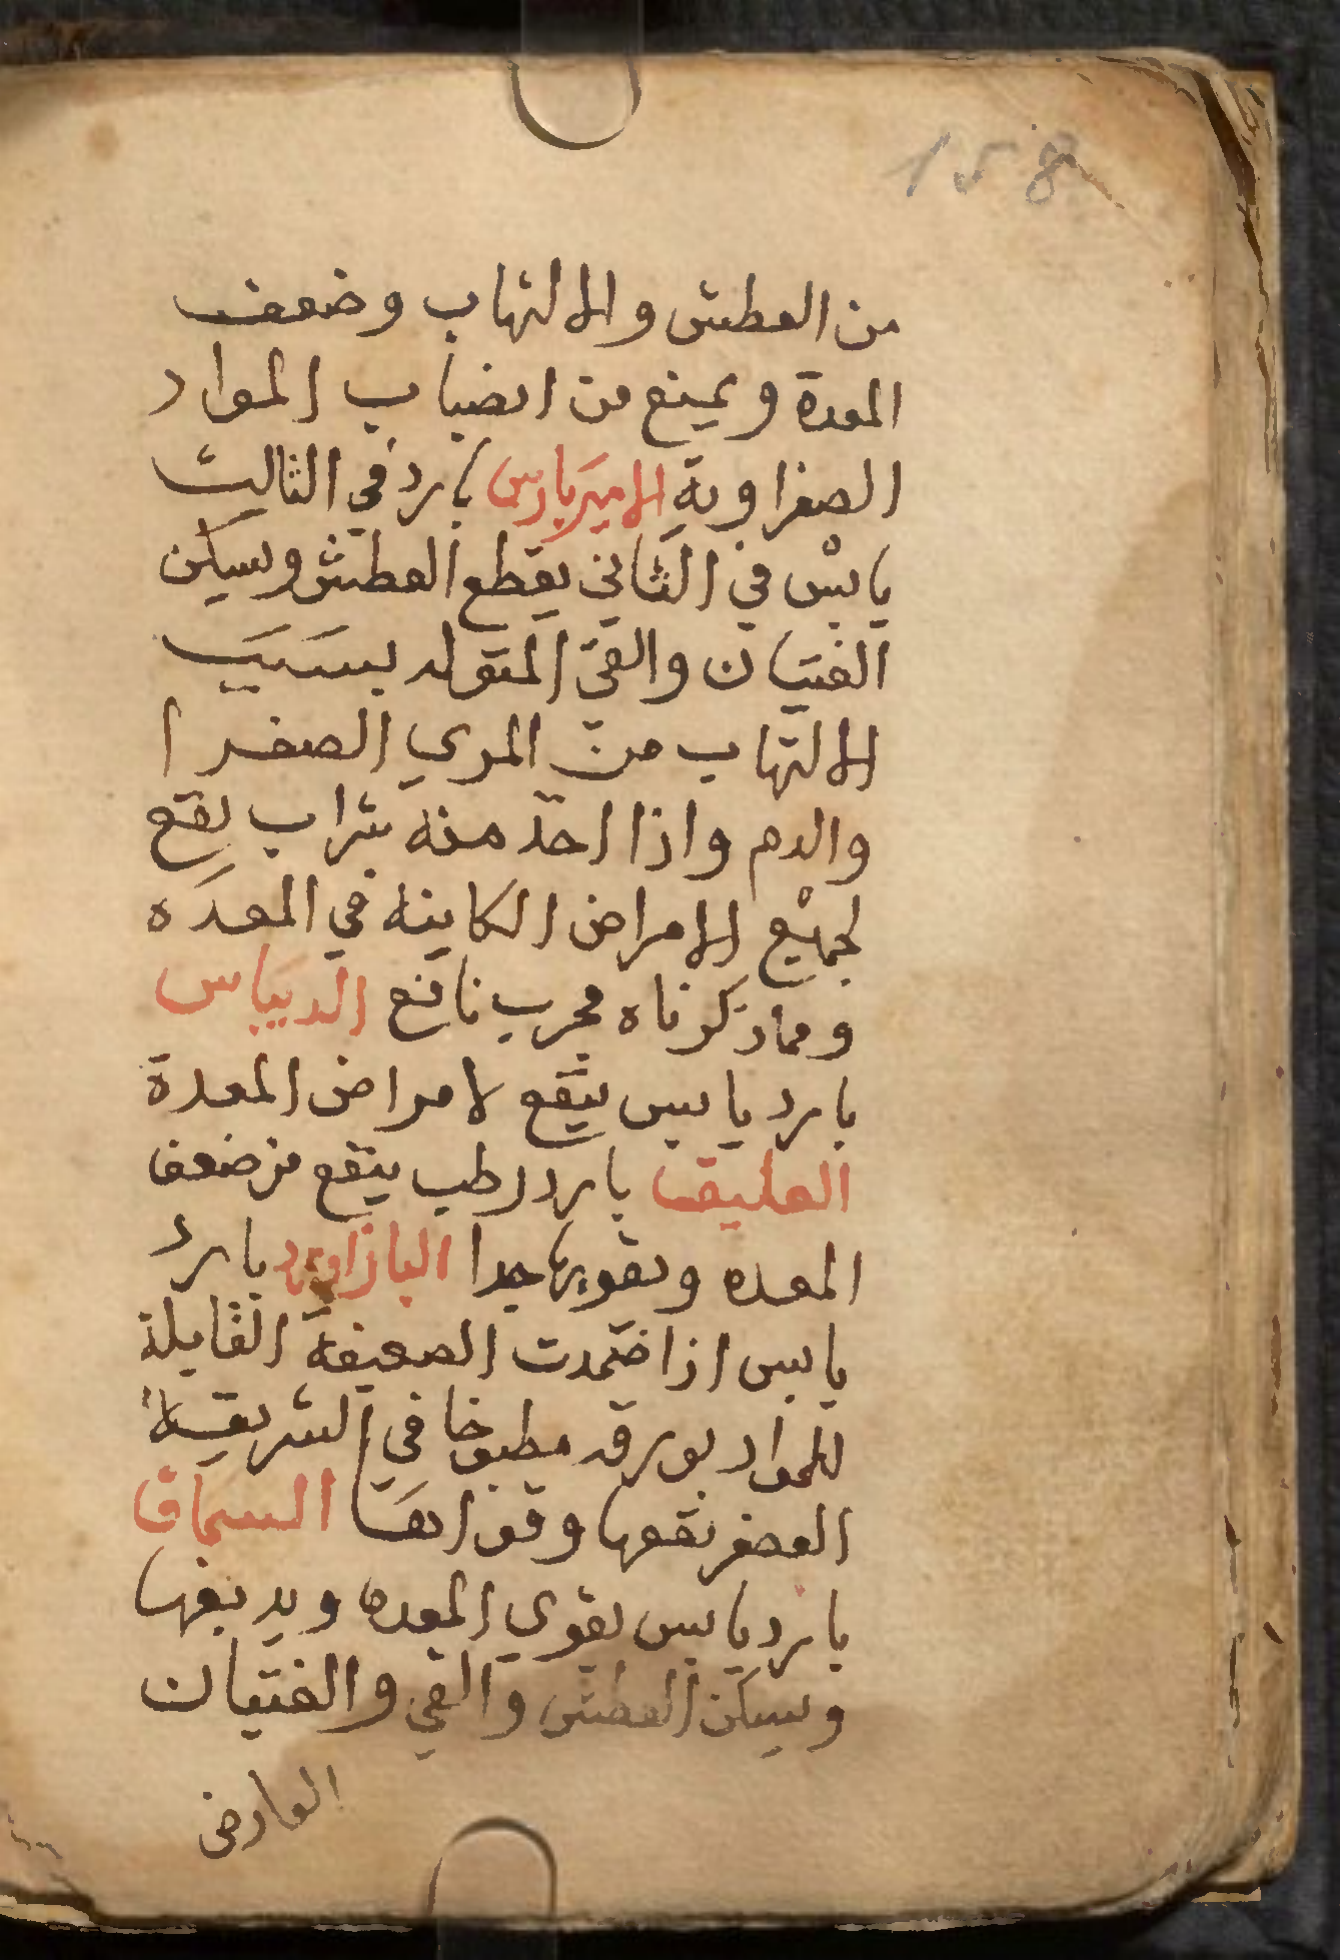 158
من العطش والالتهاب وضعف
المعدة ويمنع من انضباب المواد
الصفراوية الاميرباريس بارد في الثالث
يابس في الثاني يقطع العطش ويسكن
الغثيان والقئ المتولد بسبب
الالتهاب من المري الصفرا
والدم واذا اخذ منه شراب نفع
لجميع الامراض الكاينة في المعده
ومما ذكرناه مجرب نافع الديباس
بارد يابس ينفع لامراض المعدة
العليق بارد رطب ينفع من ضعف
المعده ويقويها جدا بارد
يابس اذا ضمدت الضعيفة القابلة
للمواد بورقه مطبوخا في
العصفر نفعها السماق
بارد يابس يقوي المعده ويدبغها
ويسكن العطش والقي والغثيان
العارض